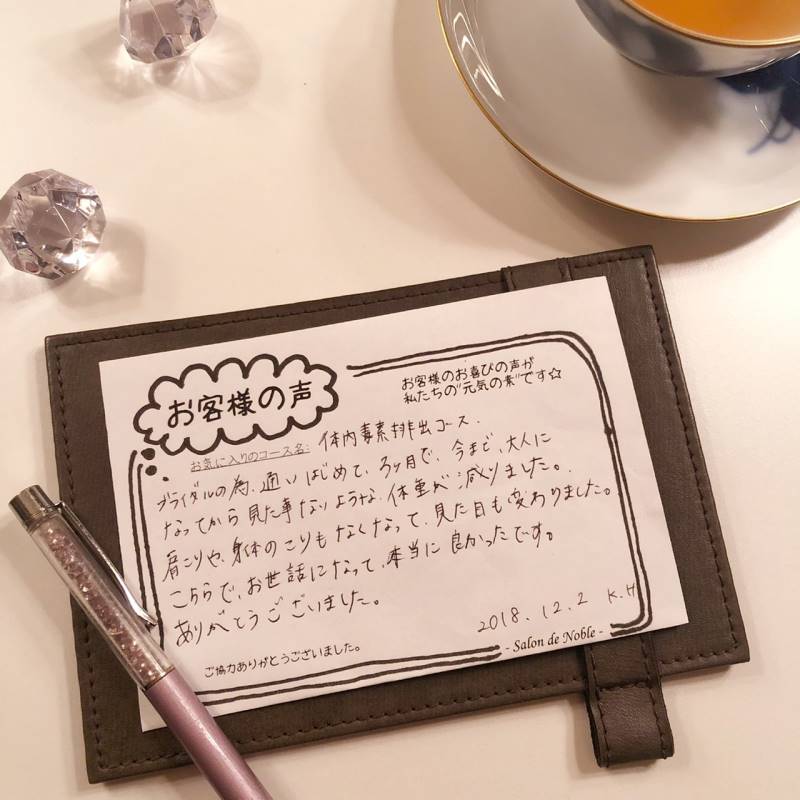 お客様の声
お客様のお喜びの声が
私たちの"元気の素"です☆
お気に入りのコース名: 体内毒素排出コース.
ブライダルの為、通いはじめて、3ヶ月で、今まで、大人に
なってから見た事ないような、体重が減りました。
肩こりや、身体のこりもなくなって、見た目も変わりました。
こちらで、お世話になって、本当に良かったです。
ありがとうございました。
2018.12.2 K.H
ご協力ありがとうございました。
- Salon de Noble -